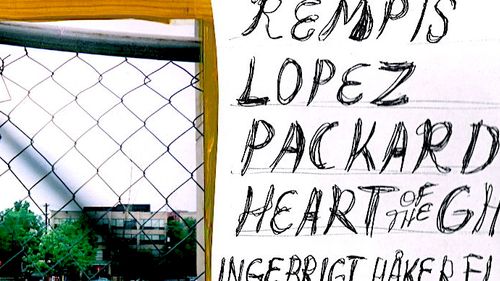 REMPIS
LOPEZ
PACKARD
HEART OF THE GH
INGEBRIGT HÅKER FL